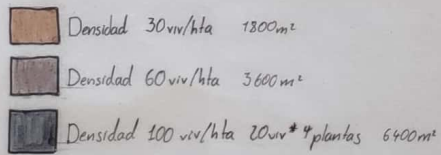 Densidad 30 viv/hta 1800m²
Densidad 60 viv/hta 3600m²
Densidad 100 viv/hta 20viv* 4plantas 6400m²